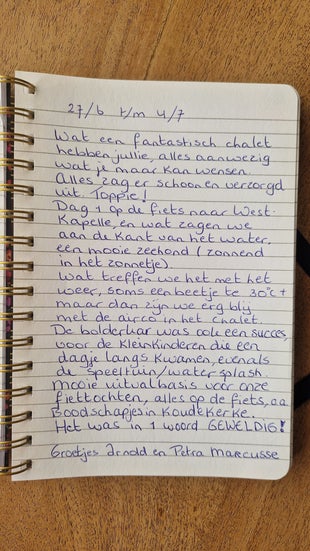 27/6 t/m 4/7
Wat een fantastisch chalet
hebben jullie, alles aanwezig
wat je maar kan wensen.
Alles zag er schoon en verzorgd
uit. Toppie!
Dag 1 op de fiets naar West-
Kapelle, en wat zagen we
aan de kant van het water,
een mooie zeehond (zonnend
in het zonnetje).
Wat treffen we het met het
weer, soms een beetje te 30°C+
maar dan zijn we erg blij
met de airco in het chalet.
De bolderkar was ook een succes,
voor de kleinkinderen die een
dagje langs kwamen, evenals
de speeltuin/watersplash.
Mooie uitvalbasis voor onze
fietstochten, alles op de fiets, o.a
Boodschapjes in Koudekerke.
Het was in 1 woord GEWELDIG!
Groetjes Arnold en Petra Marcusse